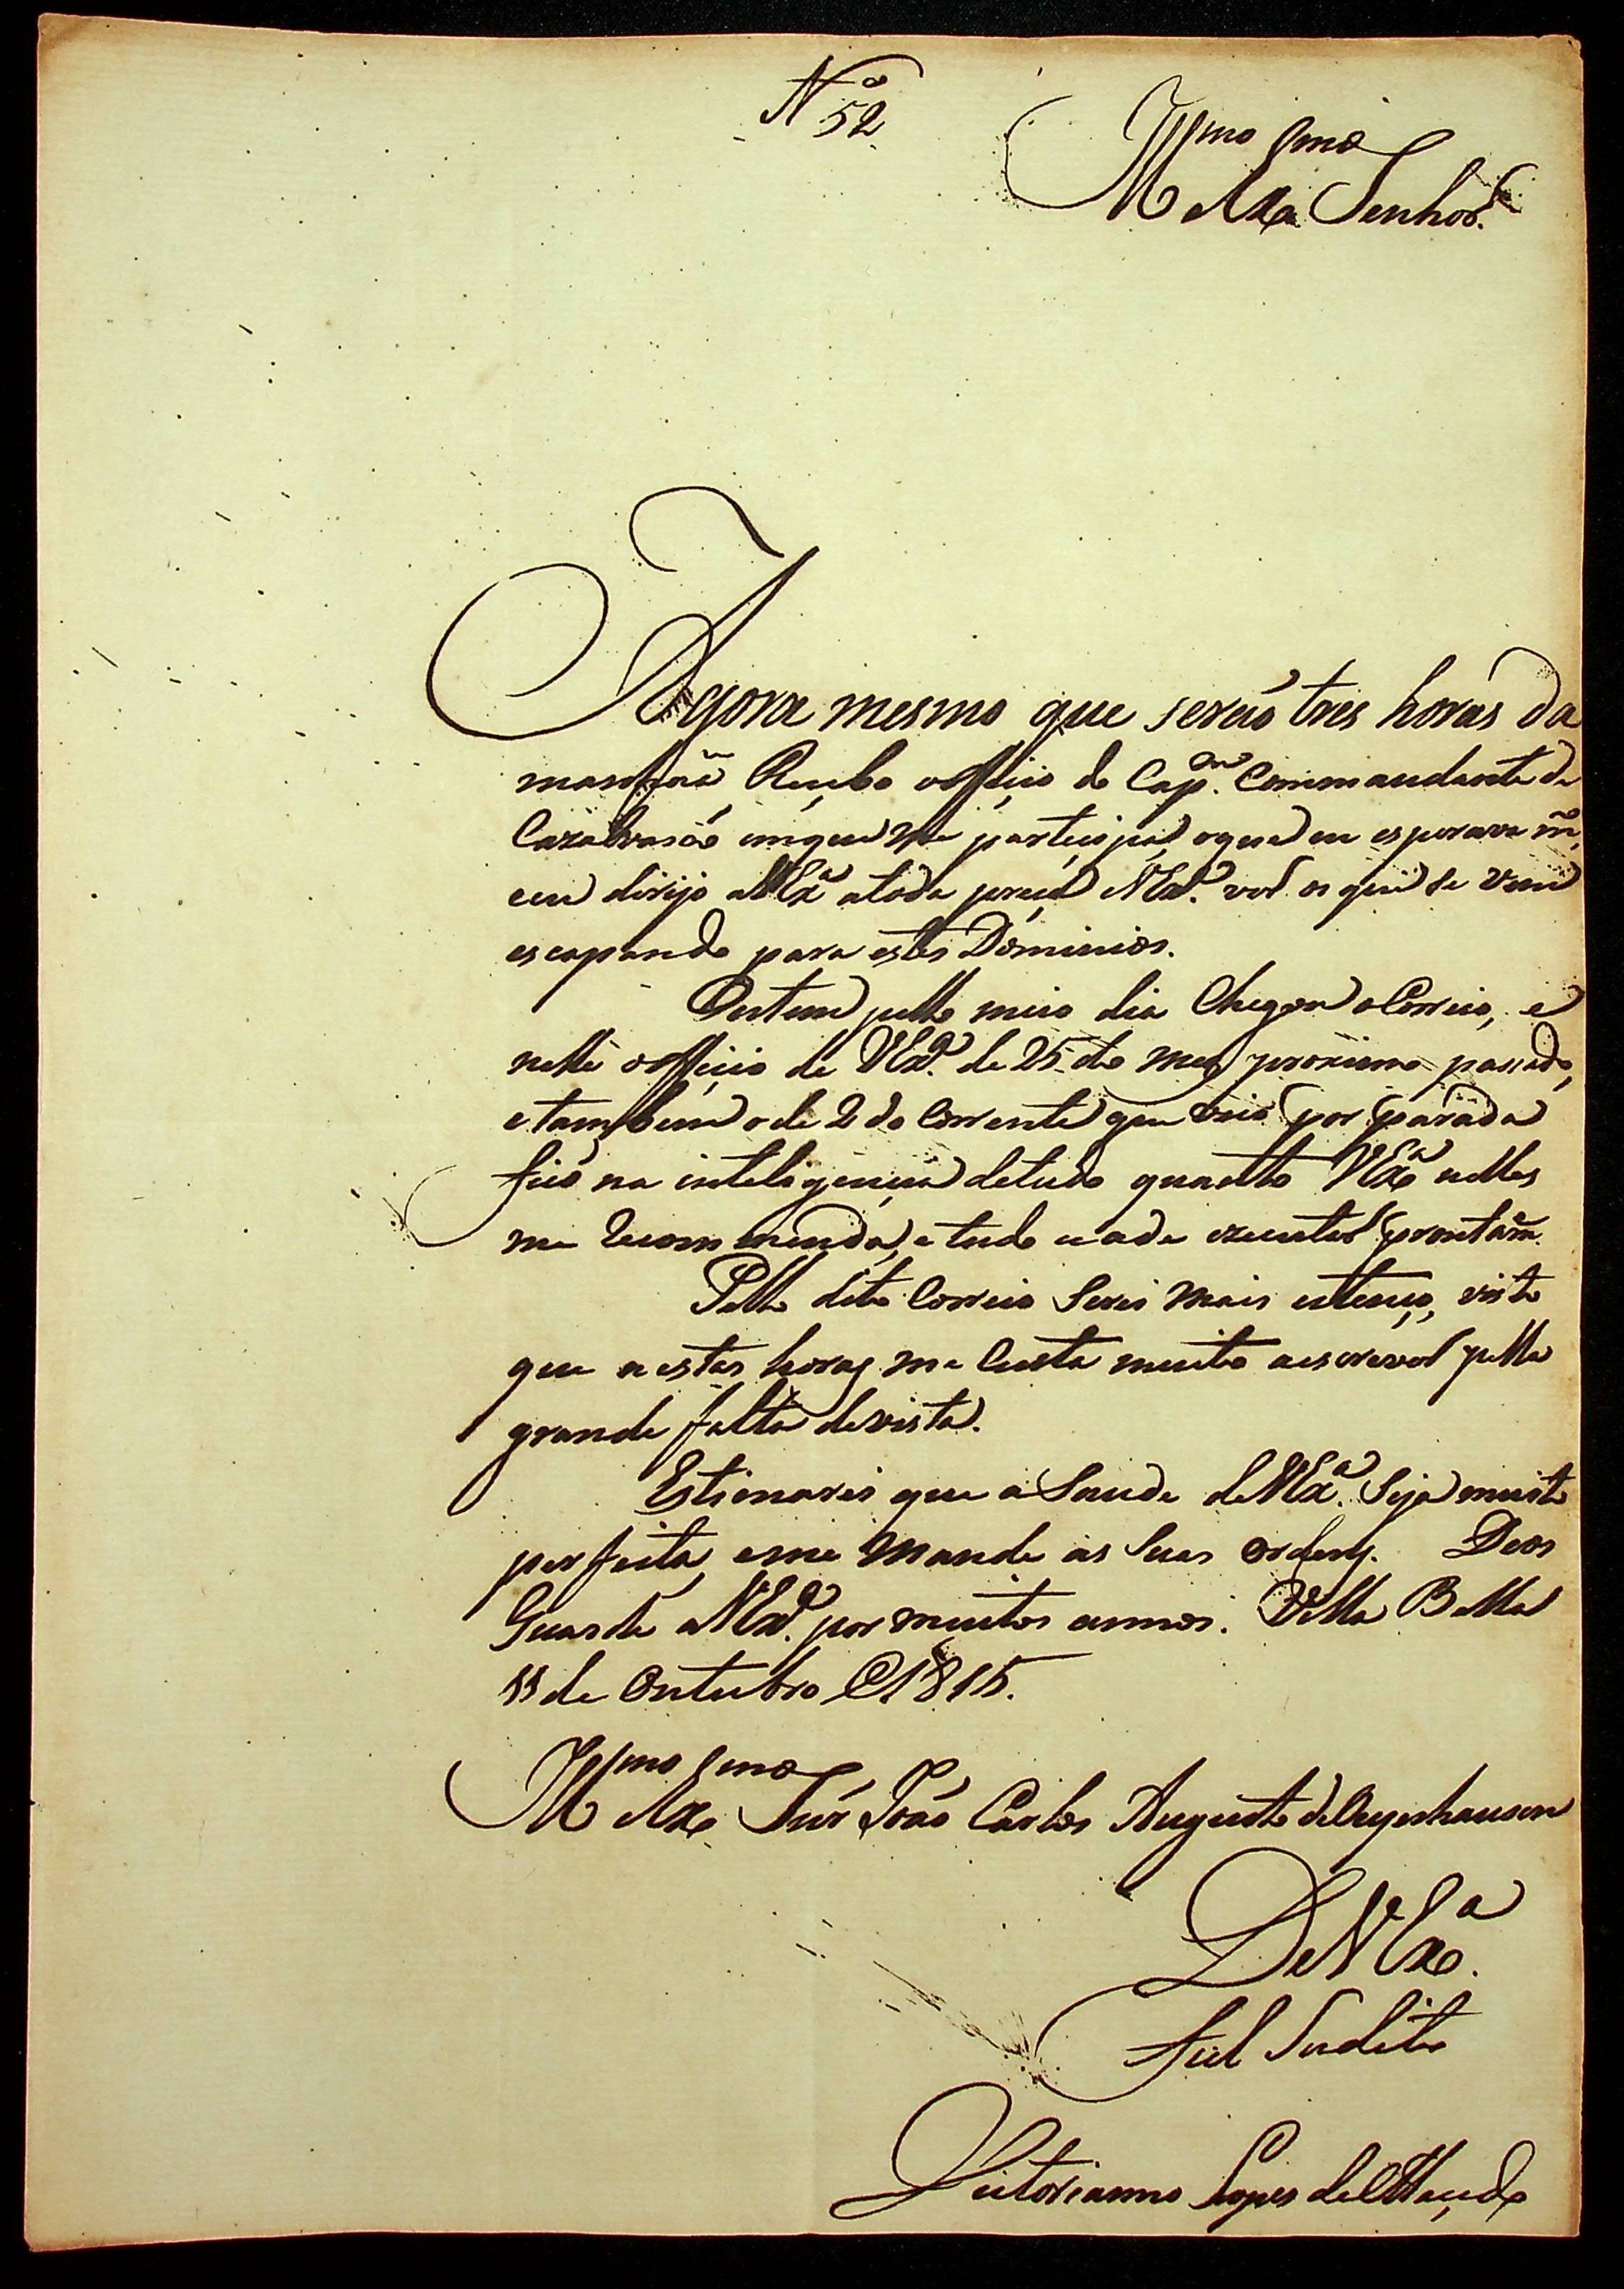 Nº 52
Illmo Exmo
Senhor.
Agora mesmo que seraó tres horas da
manhaã Recebo o officio do Capᵐ. Commandante de
Cazalvasco em que me participa, o que eu esperava
e eu dirijo a V Exª a toda pressa V Exª. os que se vem
escapando para estes Dominios.
Ontem pello meio dia Chegou o Correio, e
nelle o officio de V Exª. de 25 do mez proximo passado,
e tambem o de 2 do Corrente que veio por parada
fico na inteligencia de tudo quanto V Exª nelles
me recommenda, e tudo e ade executar prontam.
Pello dito Correio Serei mais extenço, visto
que a estas horas me Custa muito a escrever pella
grande falta de vista.
Estimarei que a Saude de V Exª. Seja muito
perfeita, e me Mande as Suas ordens. Deos
Guarde a V Exª. por muitos annos. Villa Bella
11 de Outubro de 1815.
Illmo Exmo
Snr João Carlos Augusto de Oeynhausen
De V Exª.
Fiel Sudito
Victorianno Lopes de Macedo